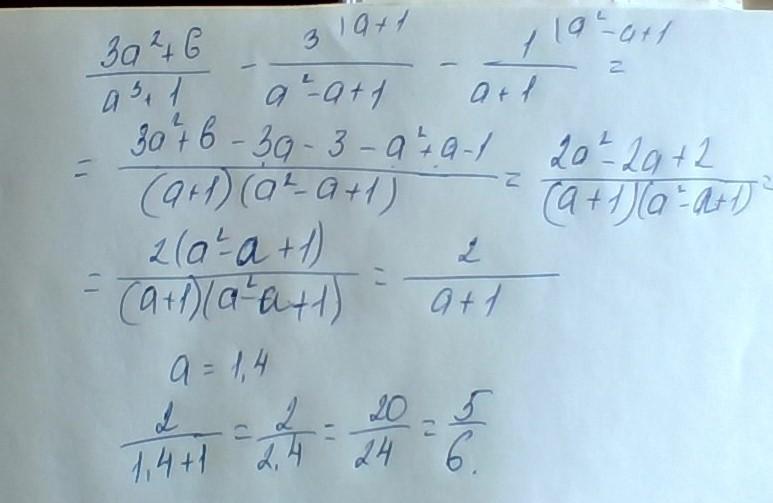 (3a²+6)/(a³+1) - 3|a+1/(a²-a+1) - 1|a²-a+1/(a+1) =
= (3a²+6-3a-3-a²+a-1)/((a+1)(a²-a+1)) = (2a²-2a+2)/((a+1)(a²-a+1)) =
= 2(a²-a+1)/((a+1)(a²-a+1)) = 2/(a+1)
a = 1,4
2/(1,4+1) = 2/2,4 = 20/24 = 5/6.